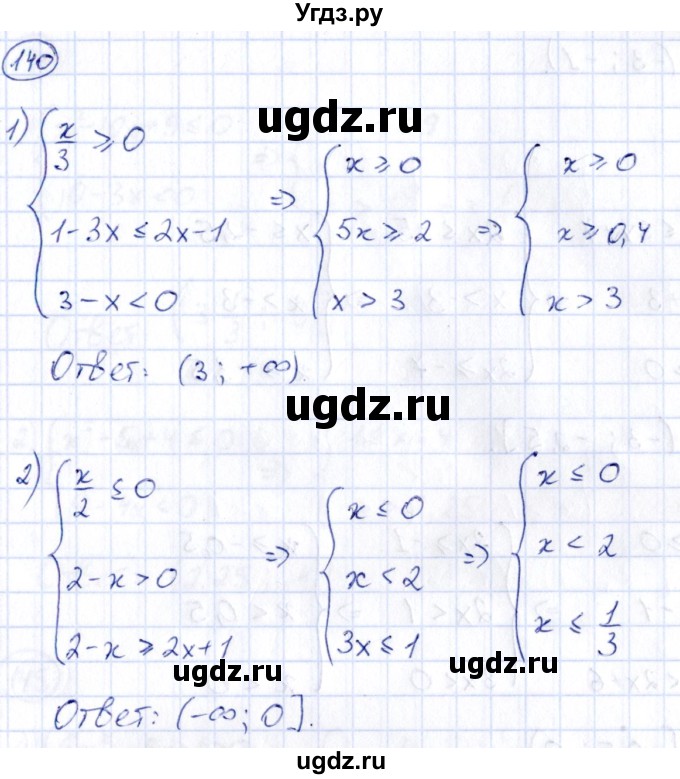 Угдз.ру
140
1) { x/3 ⩾ 0
1-3x ≤ 2x-1
3-x < 0
⇒ { x ⩾ 0
5x ⩾ 2
x > 3
⇒ { x ⩾ 0
x ⩾ 0,4
x > 3
ugdz.ru
ugdz.ru
Ответ: (3; +∞).
ugdz.ru
2) { x/2 ≤ 0
2-x > 0
2-x ⩾ 2x+1
⇒ { x ≤ 0
x < 2
3x ≤ 1
⇒ { x ≤ 0
x < 2
x ≤ 1/3
ugdz.ru
ugdz.ru
Ответ: (-∞; 0].
ugdz.ru